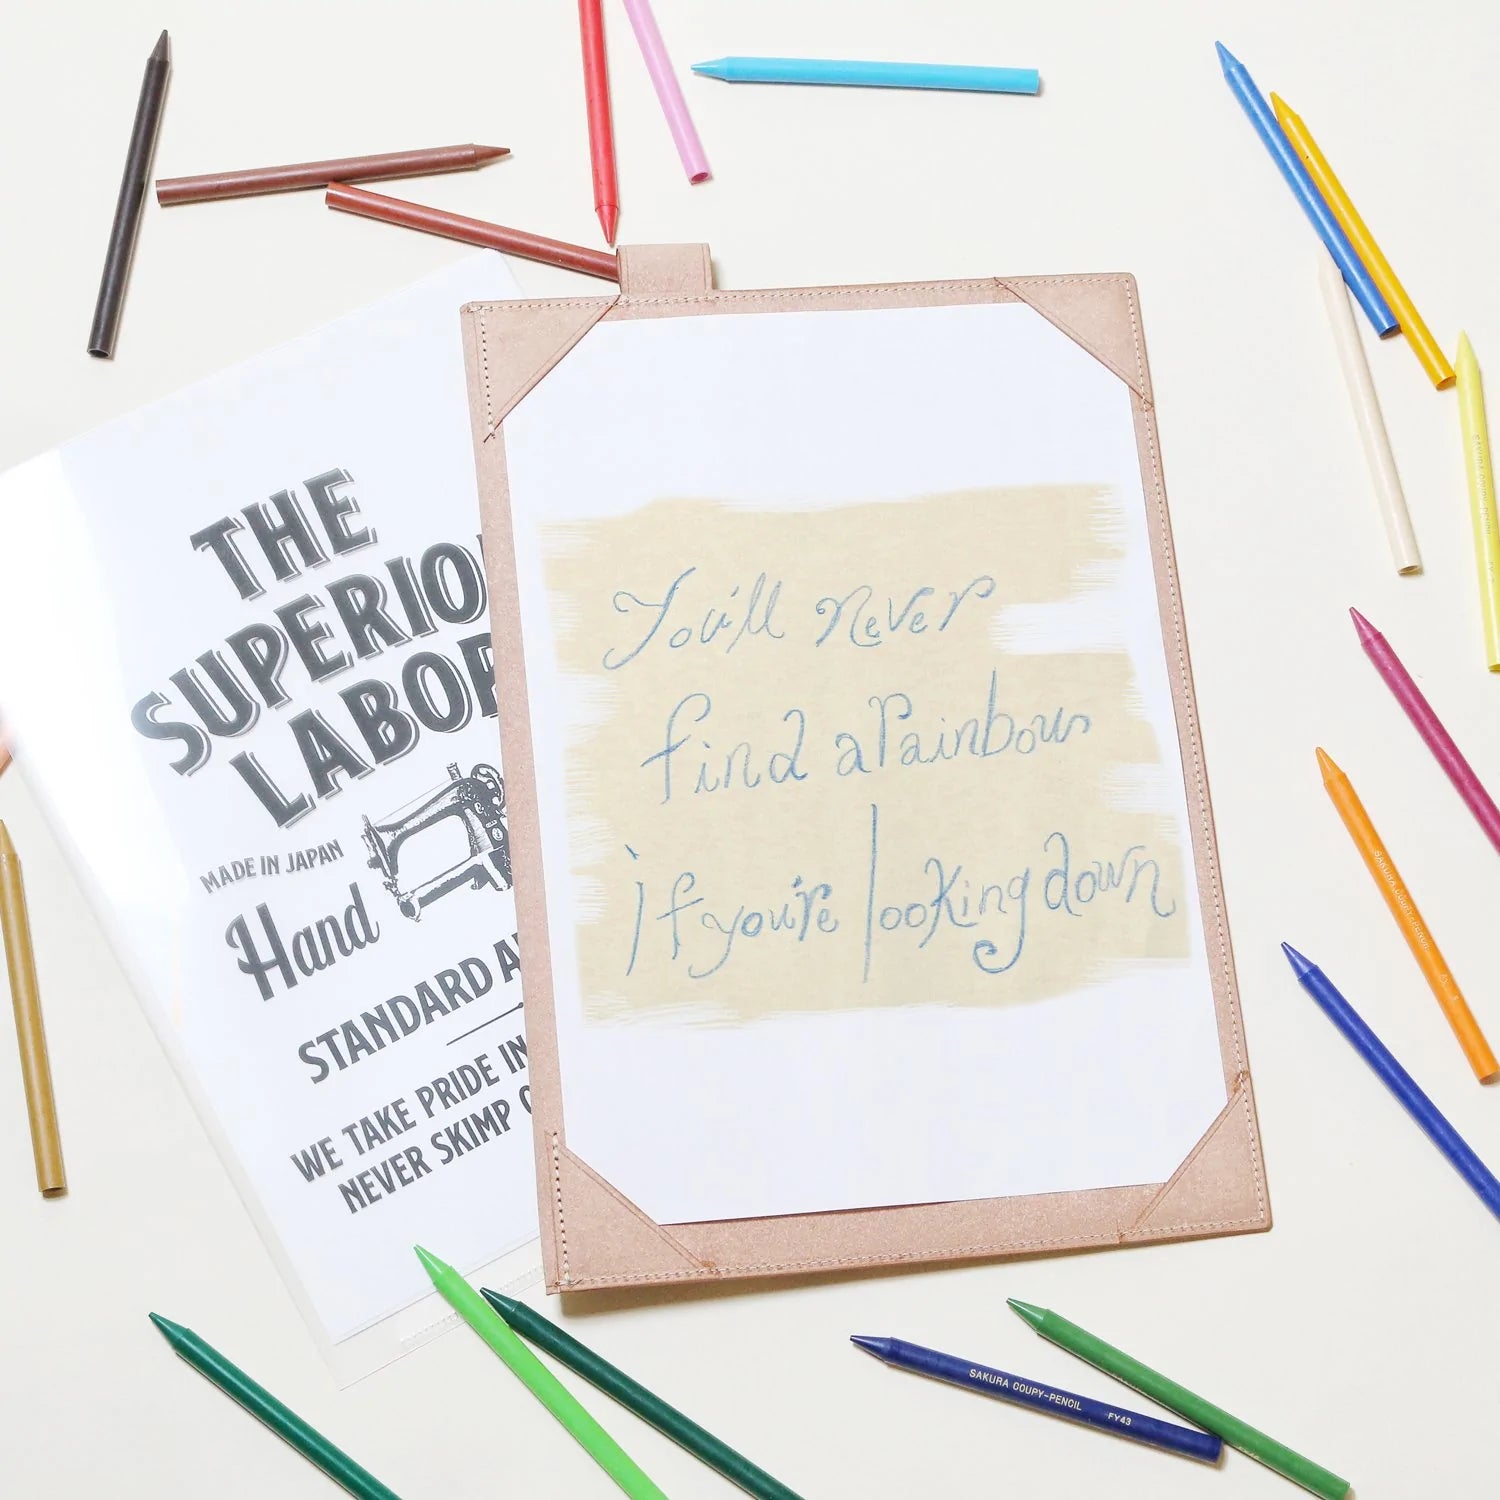 THE
SUPERIO
LABOR
MADE IN JAPAN
Hand
STANDARD A
WE TAKE PRIDE IN
NEVER SKIMP O
You'll never
find a rainbow
if you're looking down
SAKURA COUPY-PENCIL FY43
SAKURA COUPY-PENCIL FY
SAKURA COUPY-PENCIL